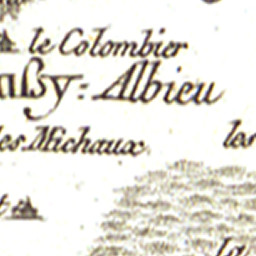 le Colombier
ußy=Albieu
les Michaux
les
la